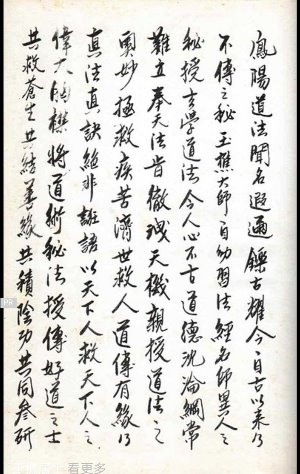 鳳陽道法聞名遐邇鑠古耀今自古以來乃
不傳之秘玉樵大師自幼習法經名師異人之
秘授玄學道法令人心不古道德沉淪綱常
難立奉天法旨徹洩天機親授道法之
奧妙拯救疾苦濟世救人道傳有緣乃
真法真訣絕非誑語以天下人救天下人之
偉大胸襟將道術秘法授傳好道之士
共救蒼生共結善緣共積陰功共同參研
看更多
PR